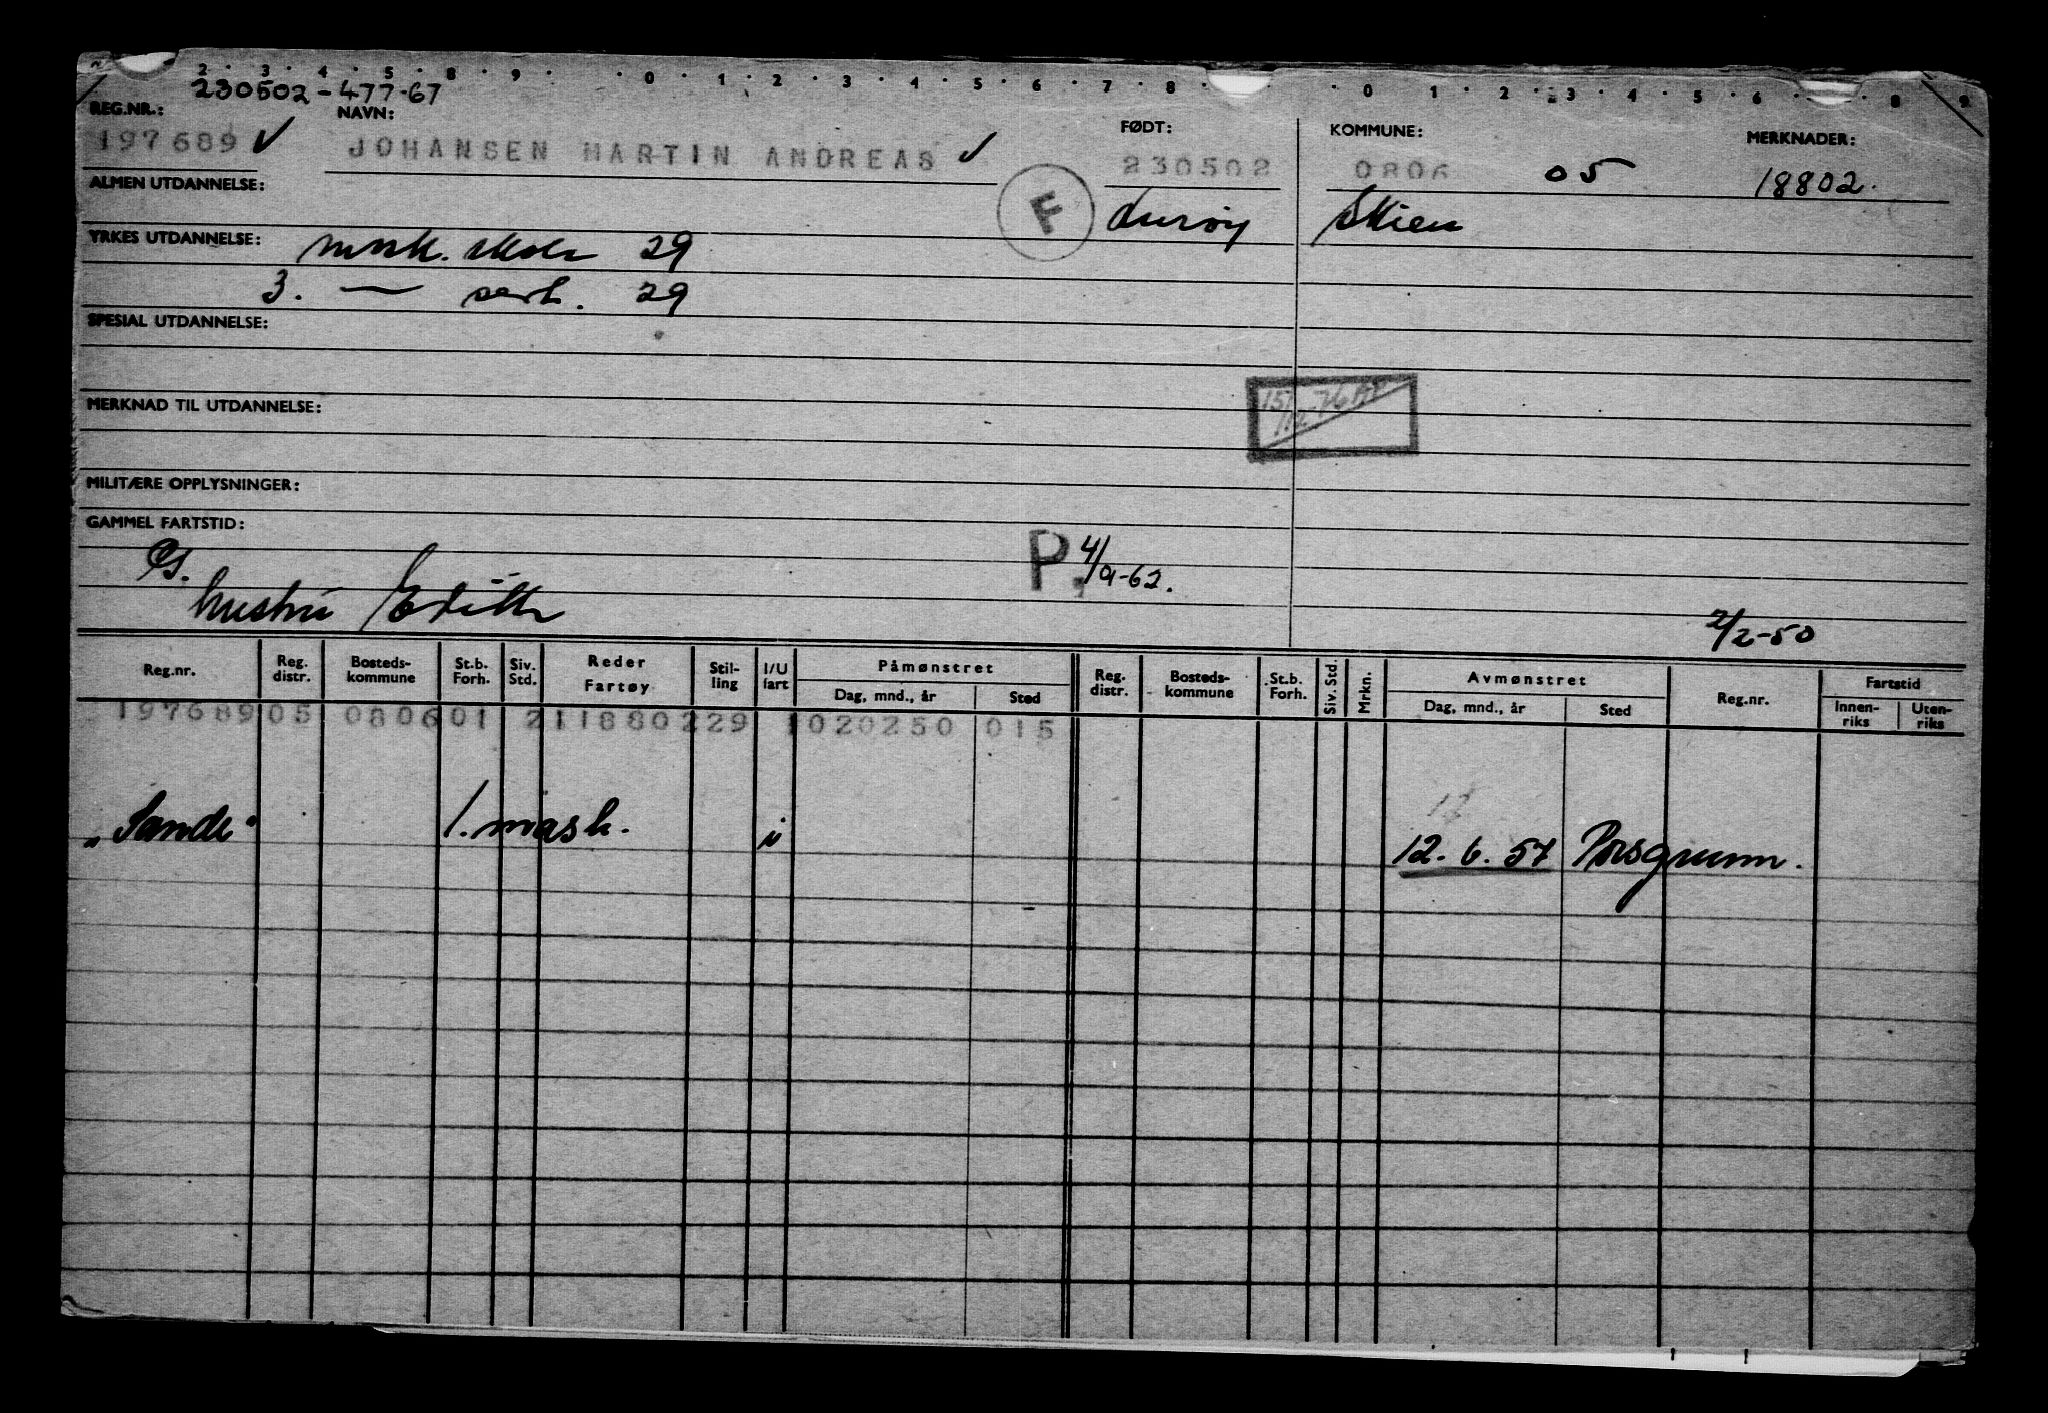 2 3 4 5 8 9 0 1 2 3 4 5 6 7 8 0 1 2 3 4 5 6 8 9
230502-477-67
REG.NR.: NAVN: FØDT: KOMMUNE: MERKNADER:
197689 ✓ JOHANSEN MARTIN ANDREAS ✓ 230502 0806 05 18802.
ALMEN UTDANNELSE: F Lurøy Skien
YRKES UTDANNELSE: mask. skole 29
3. — sert. 29
SPESIAL UTDANNELSE:
15/12-76
MERKNAD TIL UTDANNELSE:
MILITÆRE OPPLYSNINGER:
GAMMEL FARTSTID:
P. 4/9-62.
hustru Edith 2/2-50
Reg.nr. Reg. distr. Bosteds-kommune St.b. Forh. Siv. Std. Reder Fartøy Stil-ling I/U fart Påmønstret Dag, mnd., år Sted Reg. distr. Bosteds-kommune St.b. Forh. Siv. Std. Mrkn. Avmønstret Dag, mnd., år Sted Reg.nr. Fartstid Innen-riks Uten-riks
197689 05 0806 01 2 11880229 1 020250 015
"Sande" 1. mask. i 12. 6. 57 Porsgrunn.